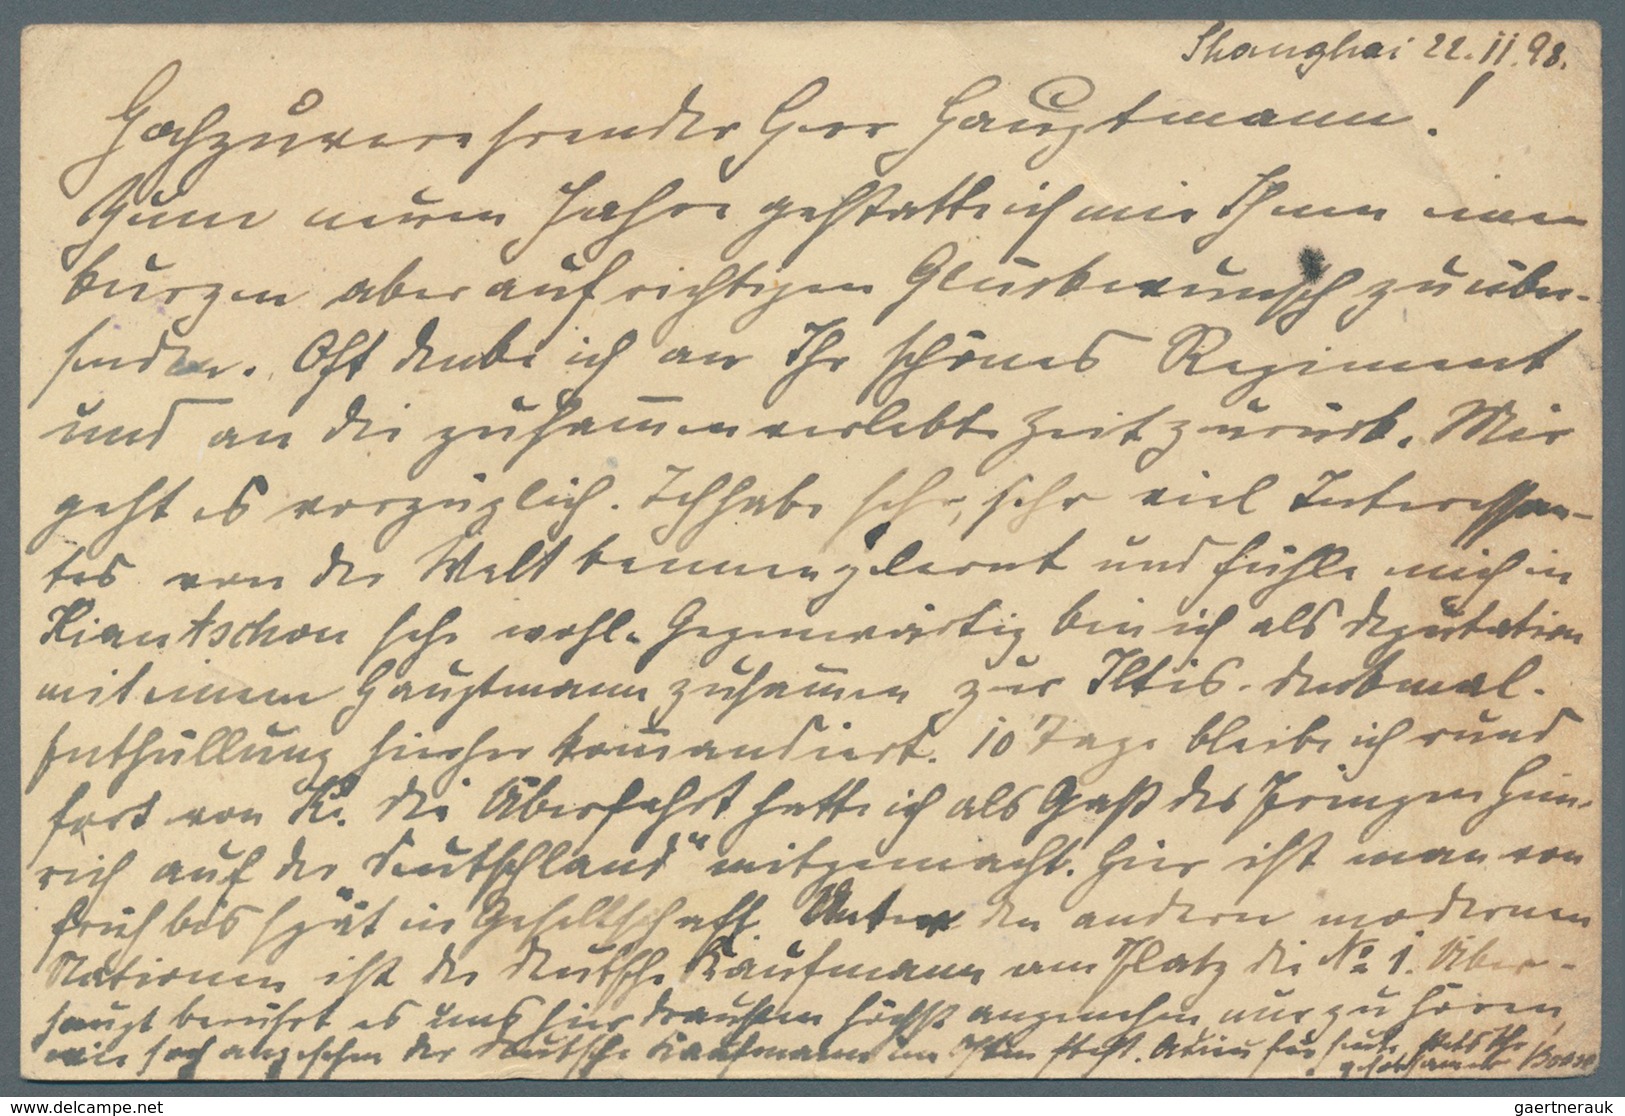 Shanghai 22.11.98.
Hochzuverehrender Herr Hauptmann!
Zum neuen Jahre gestatte ich mir Ihnen einen
kurzen aber aufrichtigen Glückwunsch zu über-
senden. Oft denke ich an Ihr schönes Regiment
und an die zusammen verlebte Zeit zurück. Mir
geht es vorzüglich. Ich habe sehr, sehr viel Interessan-
tes von der Welt kennengelernt und fühle mich in
Kiautschou sehr wohl. Gegenwärtig bin ich als Deputation
mit einem Hauptmann zusammen zur Iltis-Denkmal-
Enthüllung hierher kommandiert. 10 Tage bleibe ich rund
fort von K. Die Überfahrt hatte ich als Gast des Prinzen Hein-
rich auf der "Deutschland" mitgemacht. Hier ist man von
früh bis spät in Gesellschaft. Unter den anderen modernen
Nationen ist der deutsche Kaufmann am Platz die No 1. Über-
haupt berührt es uns hier draußen höchst angenehm nur zu hören,
wie hoch angesehen der deutsche Kaufmann im Osten steht. Adieu für heute stets Ihr
gehorsamer
gaertnerauk